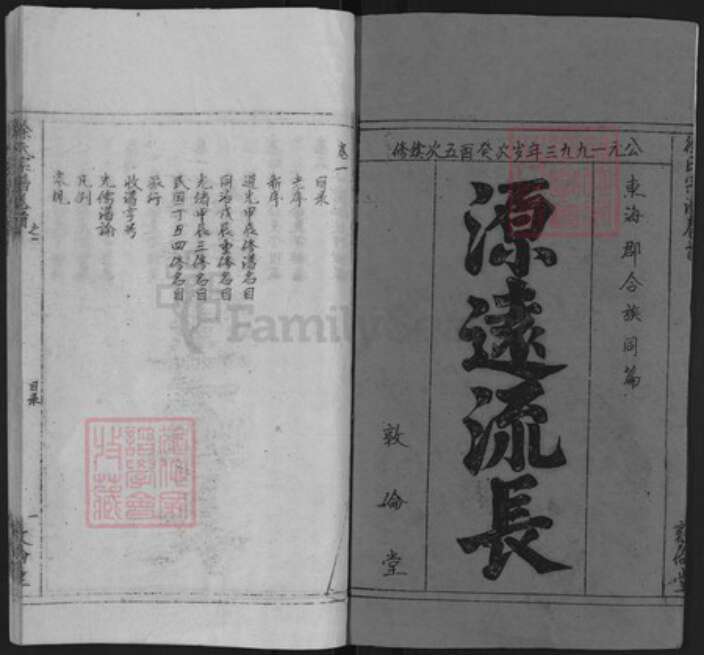 公元一九九三年岁次癸酉五次续修
東海郡合族同篇
源遠流長
敦倫堂
卷一
目录
老序
新序
道光甲辰修譜名目
同治戊辰重修名目
光绪甲辰三修名目
民国丁丑四修名目
派行
收譜字号
先儒譜論
凡例
家規
目录
一
FamilySe